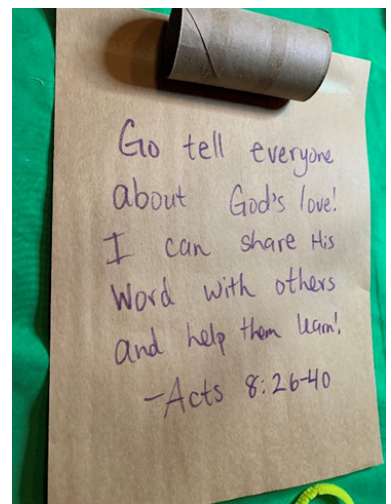 Go tell everyone
about God's love!
I can share His
Word with others
and help them learn!
-Acts 8:26-40